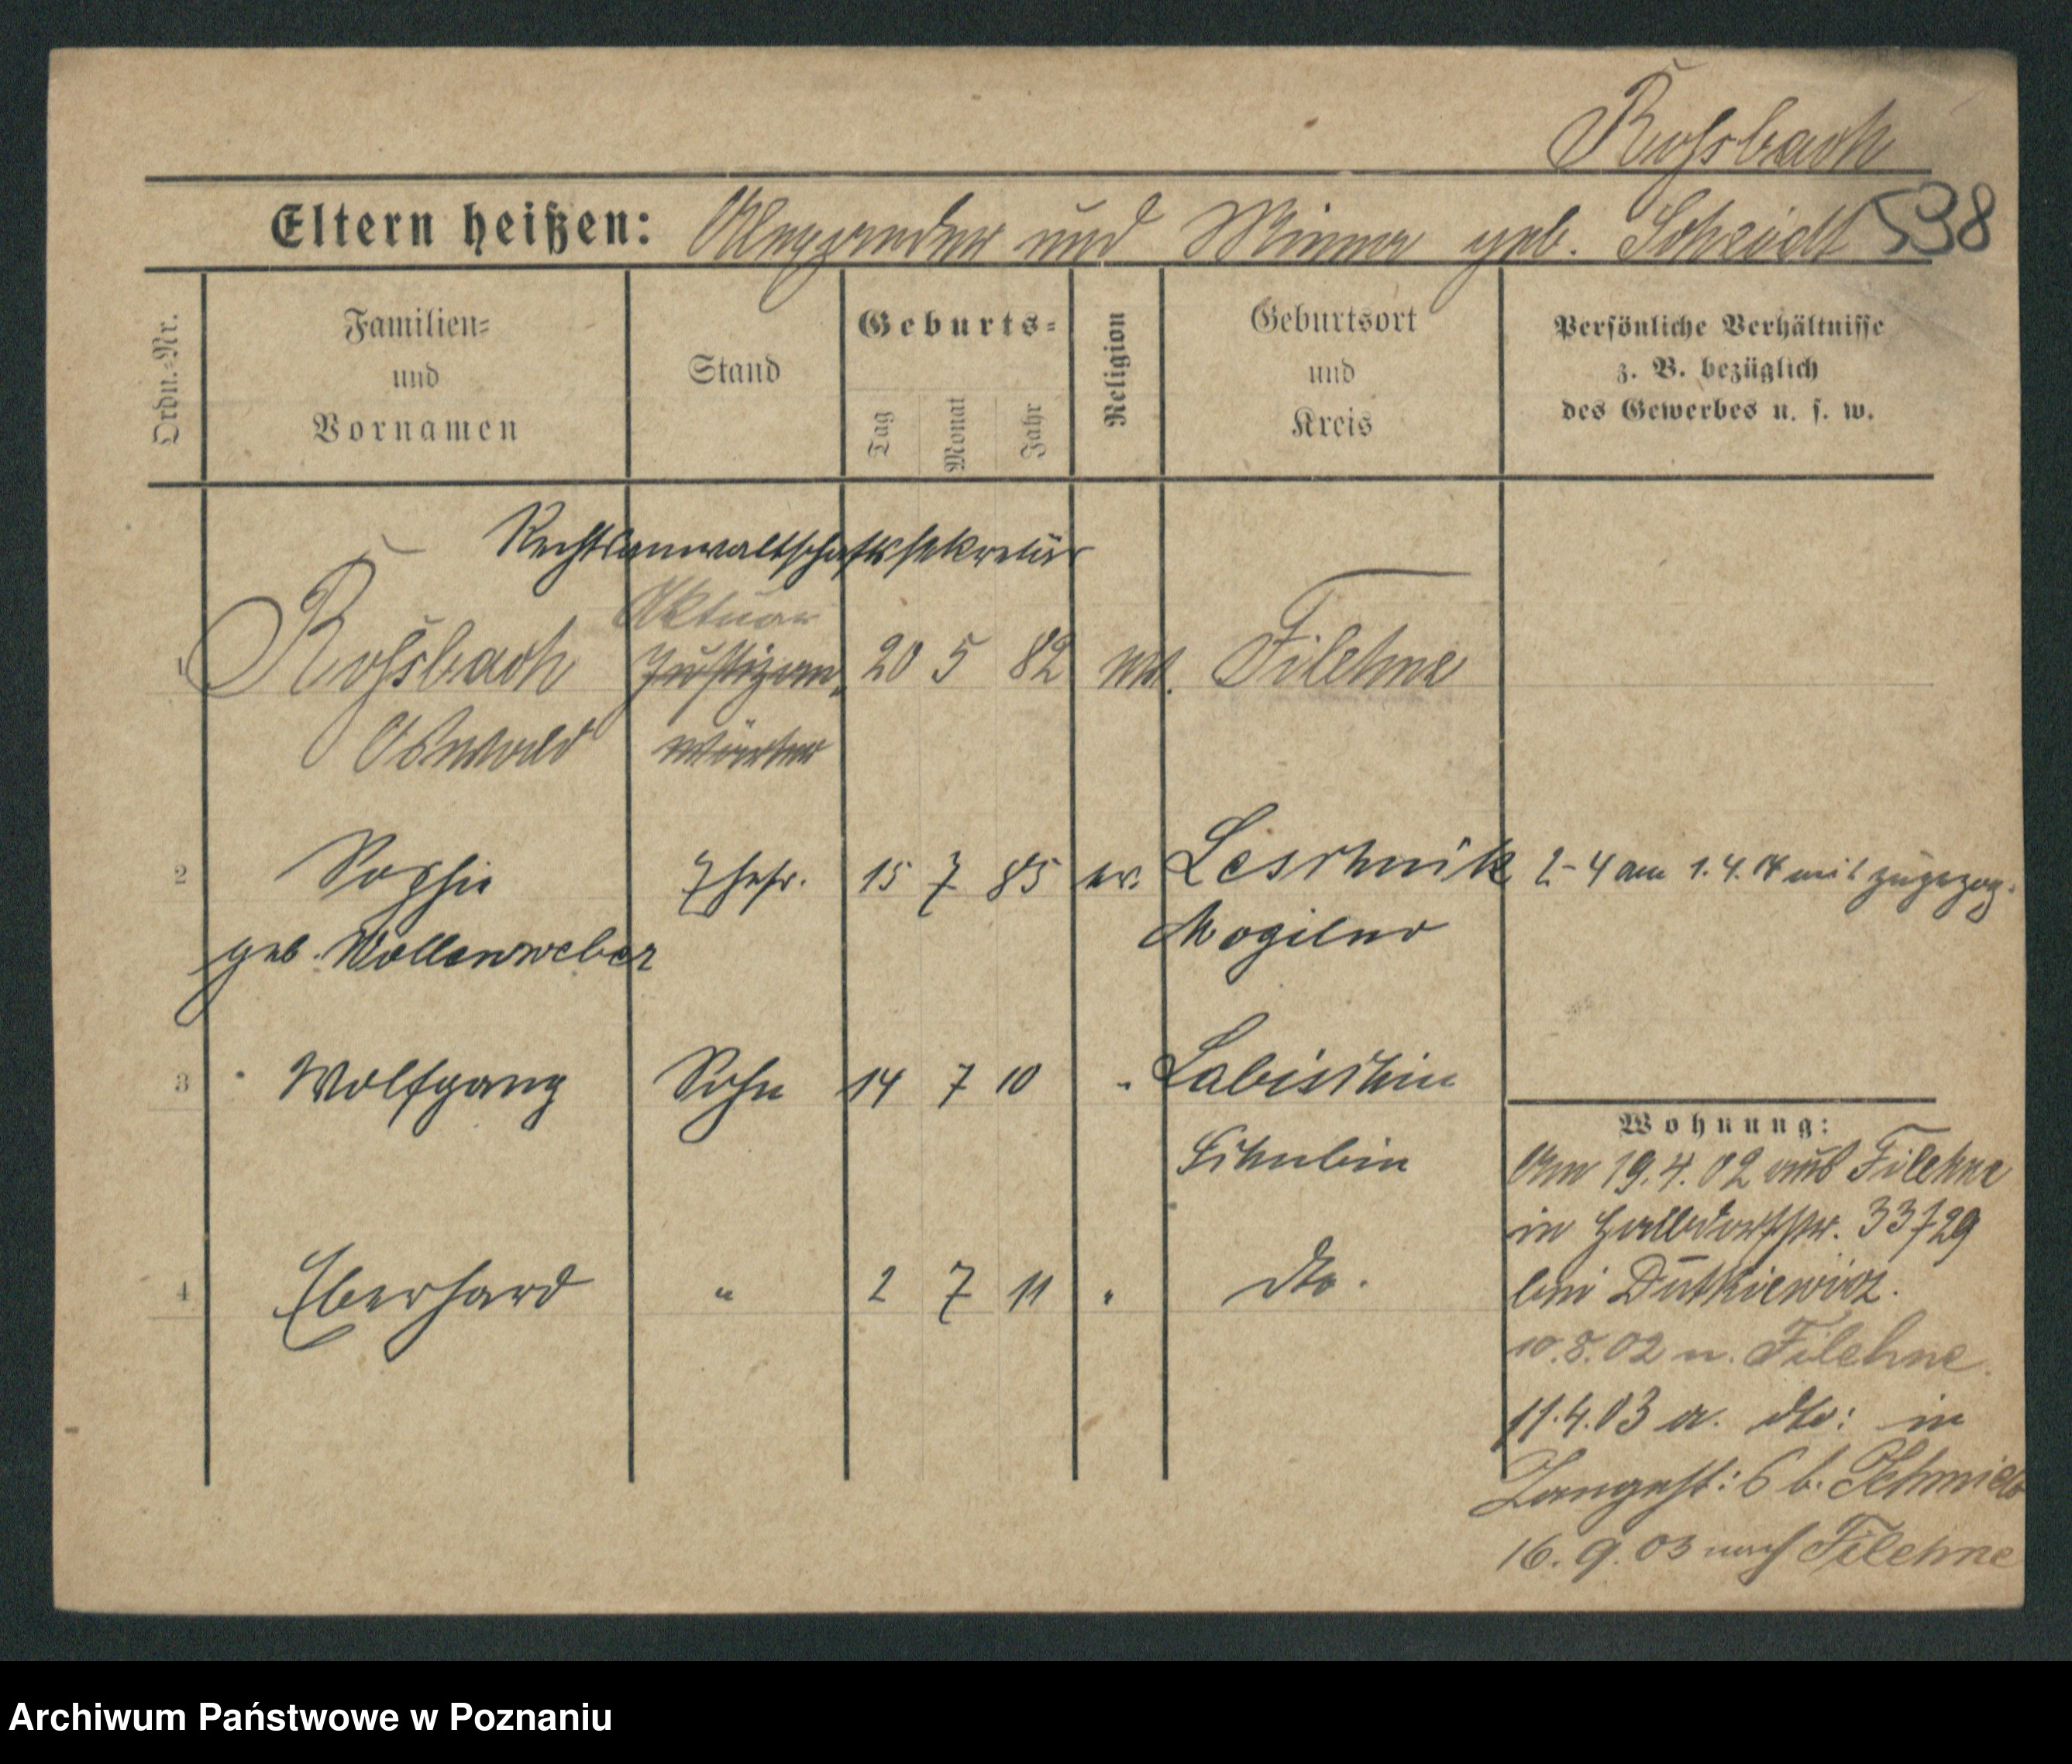 Roßbach
538
Eltern heißen: Alexander und Minna geb. Scheidt
Ordn.=Nr.
Familien=
und
Vornamen
Stand
Geburts=
Tag
Monat
Jahr
Religion
Geburtsort
und
Kreis
Persönliche Verhältnisse
z. B. bezüglich
des Gewerbes u. s. w.
Rechtsanwaltschaftssekretär
Aktuar
1 Roßbach Justizan= 20 5 82 Filehne
Oswald wärter
2 Sophie Ehefr. 15 7 85 ev. Leschnik 2-4 am 1.4. mit zugezog.
geb. Wollenweber Mogilno
3 Wolfgang Sohn 14 7 10 " Labischin
Schubin
4 Eberhard " 2 7 11 " dto.
Wohnung:
Am 19.4.02 aus Filehne
in Halbdorfstr. 33/29
bei Dutkiewicz.
10.8.02 n. Filehne
11.4.03 a. dto: in
Langest: 6 b. Schmidt
16.9.03 nach Filehne
Archiwum Państwowe w Poznaniu